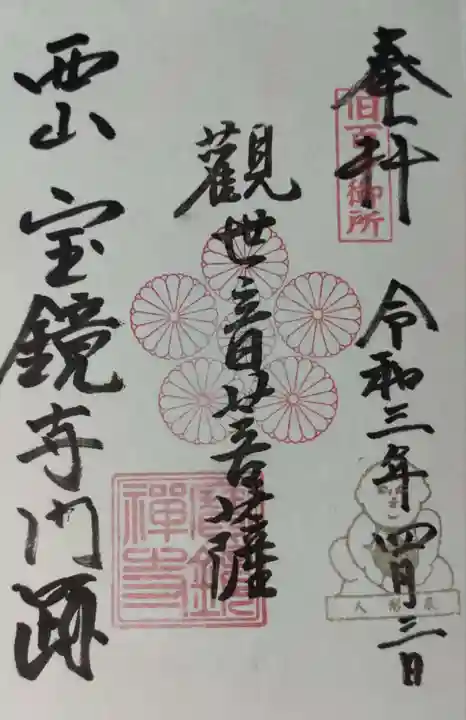 奉拝 令和三年四月三日
旧百々御所
觀世音菩薩
西山 宝鏡寺門跡
寶鏡禪寺
人形塚